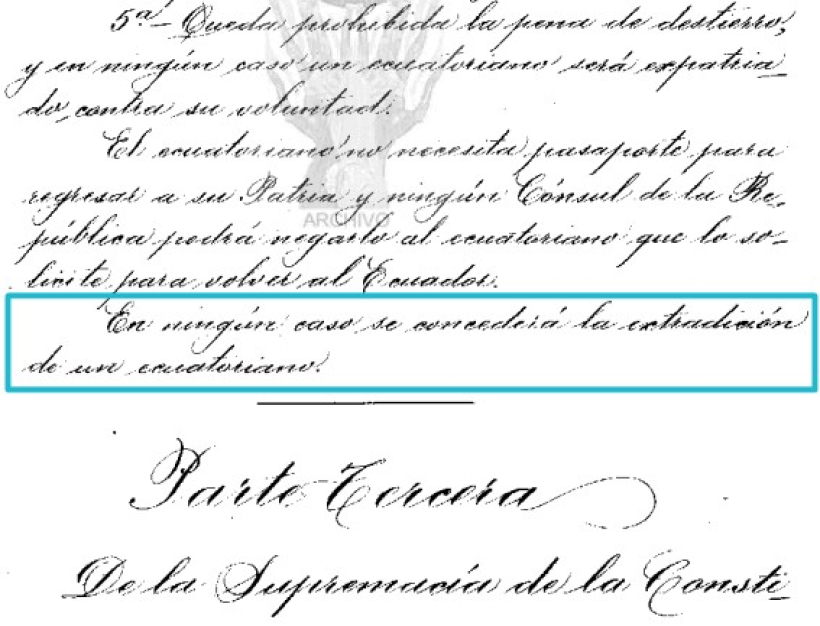 5ª- Queda prohibida la pena de destierro,
y en ningún caso un ecuatoriano será expatria-
do, contra su voluntad.
El ecuatoriano no necesita pasaporte para
regresar a su Patria y ningún Cónsul de la Re-
ARCHIVO
pública podrá negarlo al ecuatoriano que lo so-
licite para volver al Ecuador.
En ningún caso se concederá la extradición
de un ecuatoriano.
Parte Tercera
De la Supremacía de la Consti-